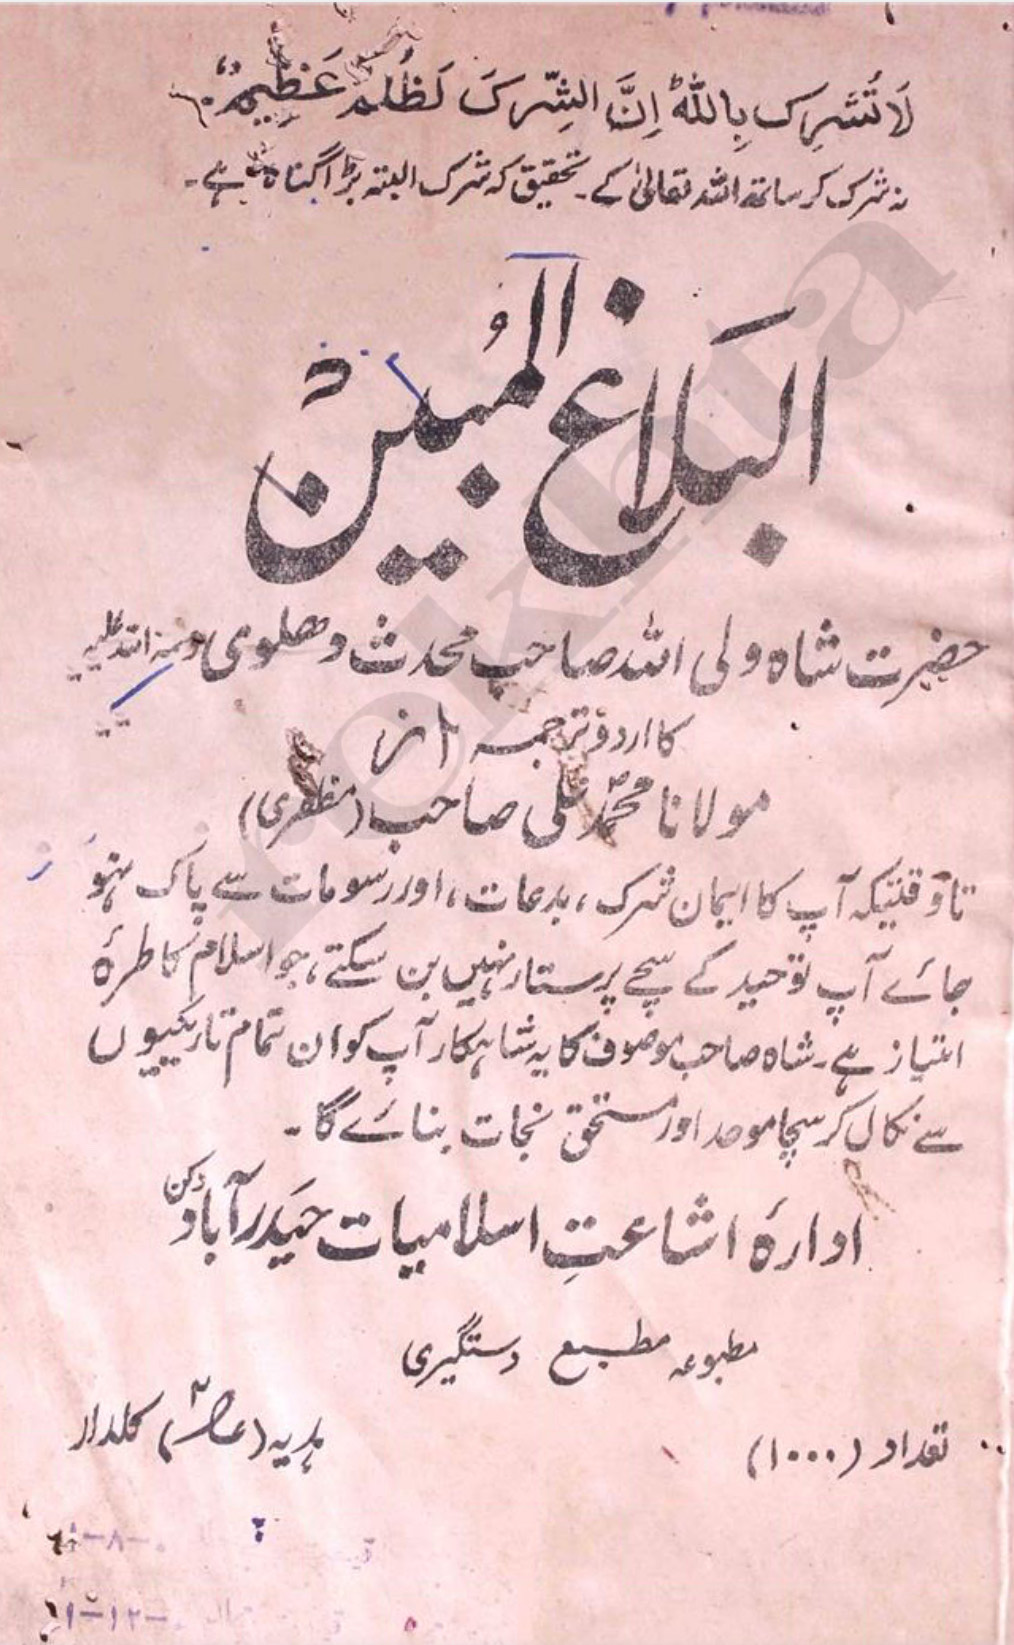 لَا تُشْرِک بِاللّٰہِ اِنَّ الشِّرکَ لَظُلمٌ عَظِیمٌ
نہ شرک کر ساتھ اللہ تعالیٰ کے۔ تحقیق کہ شرک البتہ بڑا گناہ ہے۔
البَلاغ المُبین
حضرت شاہ ولی اللہ صاحب محدث دھلوی رحمۃ اللہ علیہ
کا اردو ترجمہ از
مولانا محمّد علی صاحب (مظفری)
تا وقتیکہ آپ کا ایمان شرک، بدعات، اور رسومات سے پاک نہو
جائے آپ توحید کے سچے پرستار نہیں بن سکتے، جو اسلام کا طرۂ
امتیاز ہے۔ شاہ صاحب موصوف کا یہ شاہکار آپ کو ان تمام تاریکیوں
سے نکال کر سچا موحد اور مستحق نجات بنائے گا۔
ادارۂ اشاعتِ اسلامیات حیَدرآباد دکن
مطبوعہ مطبع دستگیری
تعداد (۱۰۰۰)
ہدیہ ( ) کلدار
rekhta